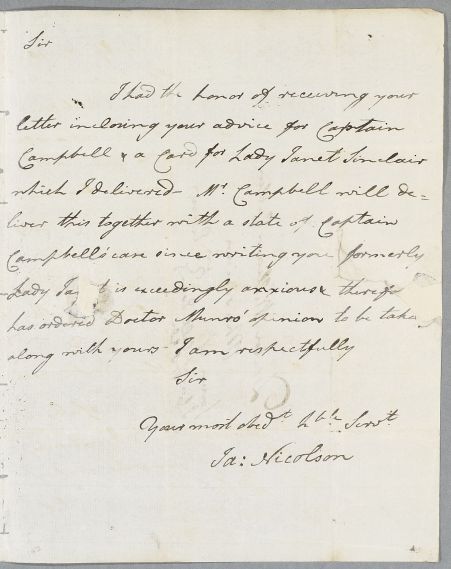 Sir
I had the honor of receiving your
letter inclosing your advice for Captain
Campbell & a Card for Lady Janet Sinclair
which I delivered Mr. Campbell will de=
liver this together with a state of Captain
Campbell's case since writing you formerly
Lady Ja t is exceedingly anxious &
has ordered Doctor Munro' opinion to be take
along with yours I am respectfully
Sir
Your most obedt. hble Servt
Ja: Nicolson